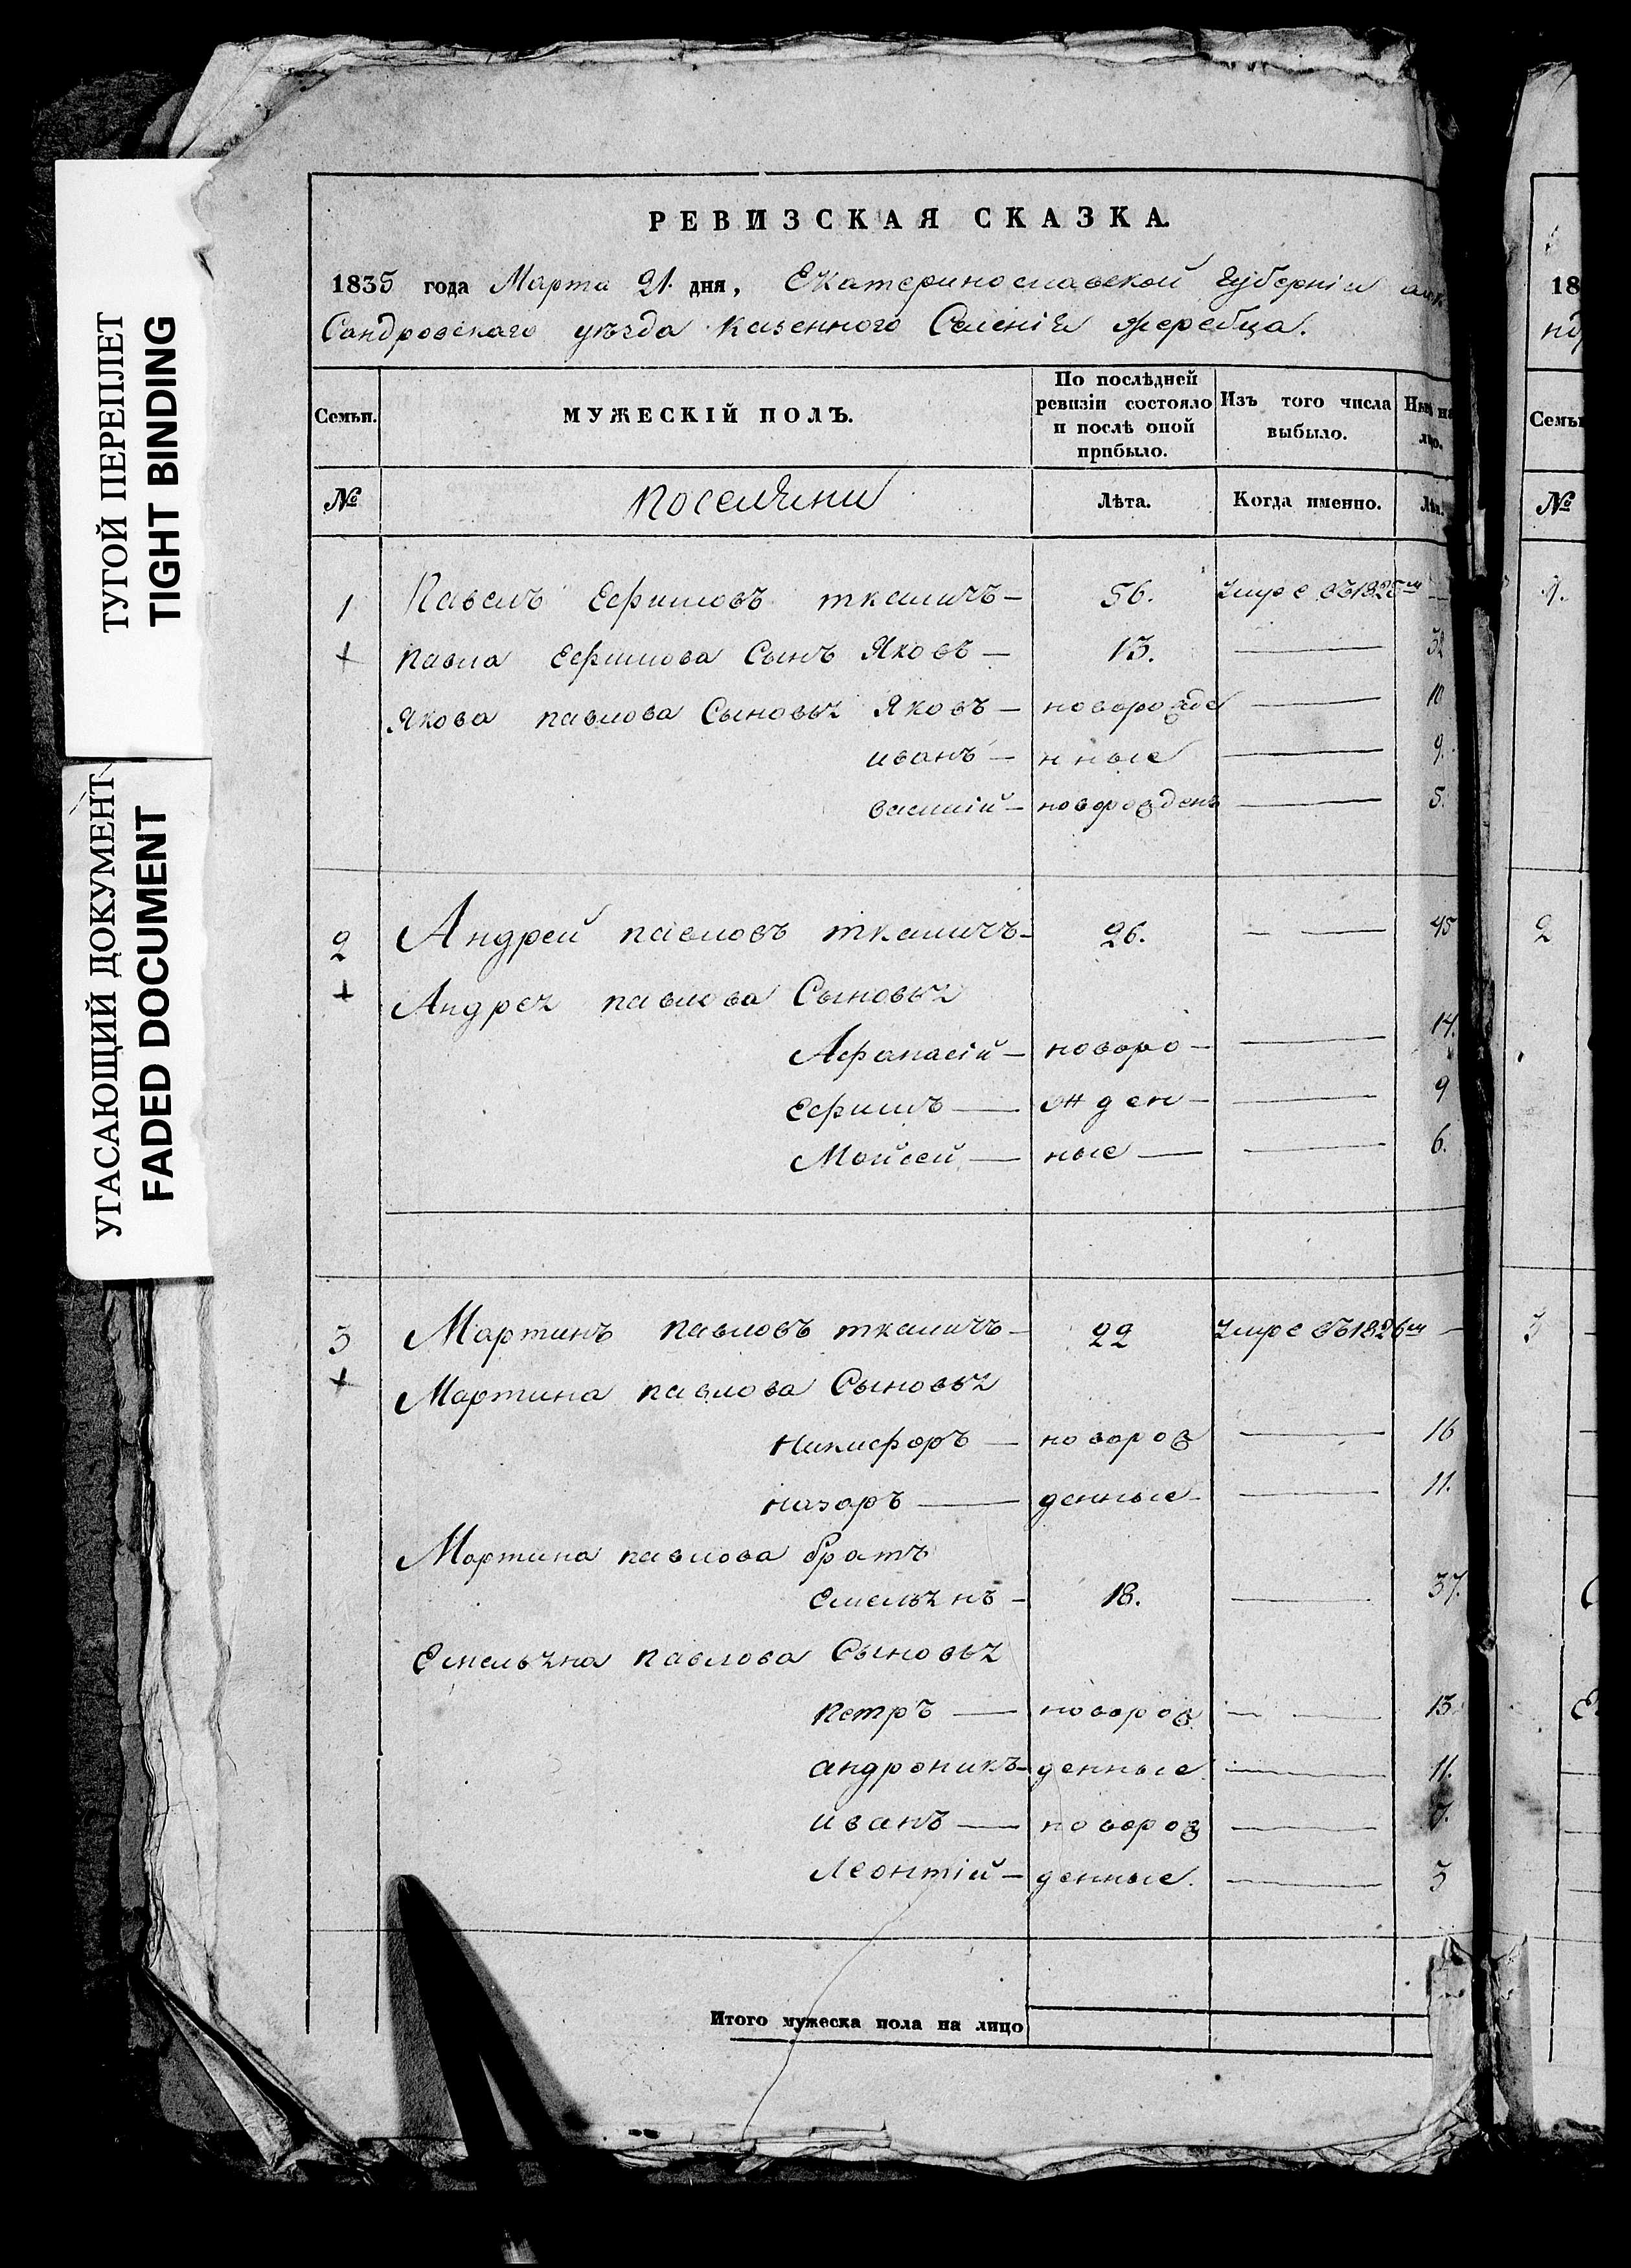 ТУГОЙ ПЕРЕПЛЕТ
TIGHT BINDING
УГАСАЮЩИЙ ДОКУМЕНТ
FADED DOCUMENT
РЕВИЗСКАЯ СКАЗКА.
1835 года Марта 21. дня, Екатеринославской губерніи алек
Сандровскаго уѣзда казенного Селенія Жеребца.
Семьи. МУЖЕСКІЙ ПОЛЪ. По послѣдней ревизіи состояло и послѣ оной прибыло. Изъ того числа выбыло. Нынѣ на лицо.
№ поселяни Лѣта. Когда именно. Лѣта.
1 Павелъ Ефимовъ ткаличъ — 56. умре въ 1825м —
+ павла Ефимова Сынъ Яковъ — 13. — 32
Якова павлова Сыновья Яковъ — новорожде — 10
иванъ — нные — 9.
василій — новорожденъ — 5.
2 Андрей павловъ ткаличъ — 26. — — 45
+ Андрея павлова Сыновья
Афанасій — новоро — — 14.
Ефимъ — жден — — 9
Мойсей — ные — — 6.
3 Мартинъ павловъ ткаличъ — 22 умре въ 1826м —
+ Мартина павлова Сыновья
Никифоръ — новорож — 16
назаръ — денные — 11.
Мартина павлова братъ
Емельянъ — 18. — 37.
Емельяна павлова Сыновья
петръ — новорож — — 13.
андроникъ — денные — 11.
иванъ — новорож — 7.
Леонтій — денные. — 3
Итого мужеска пола на лицо
18
Семьи
№
1.
2
3